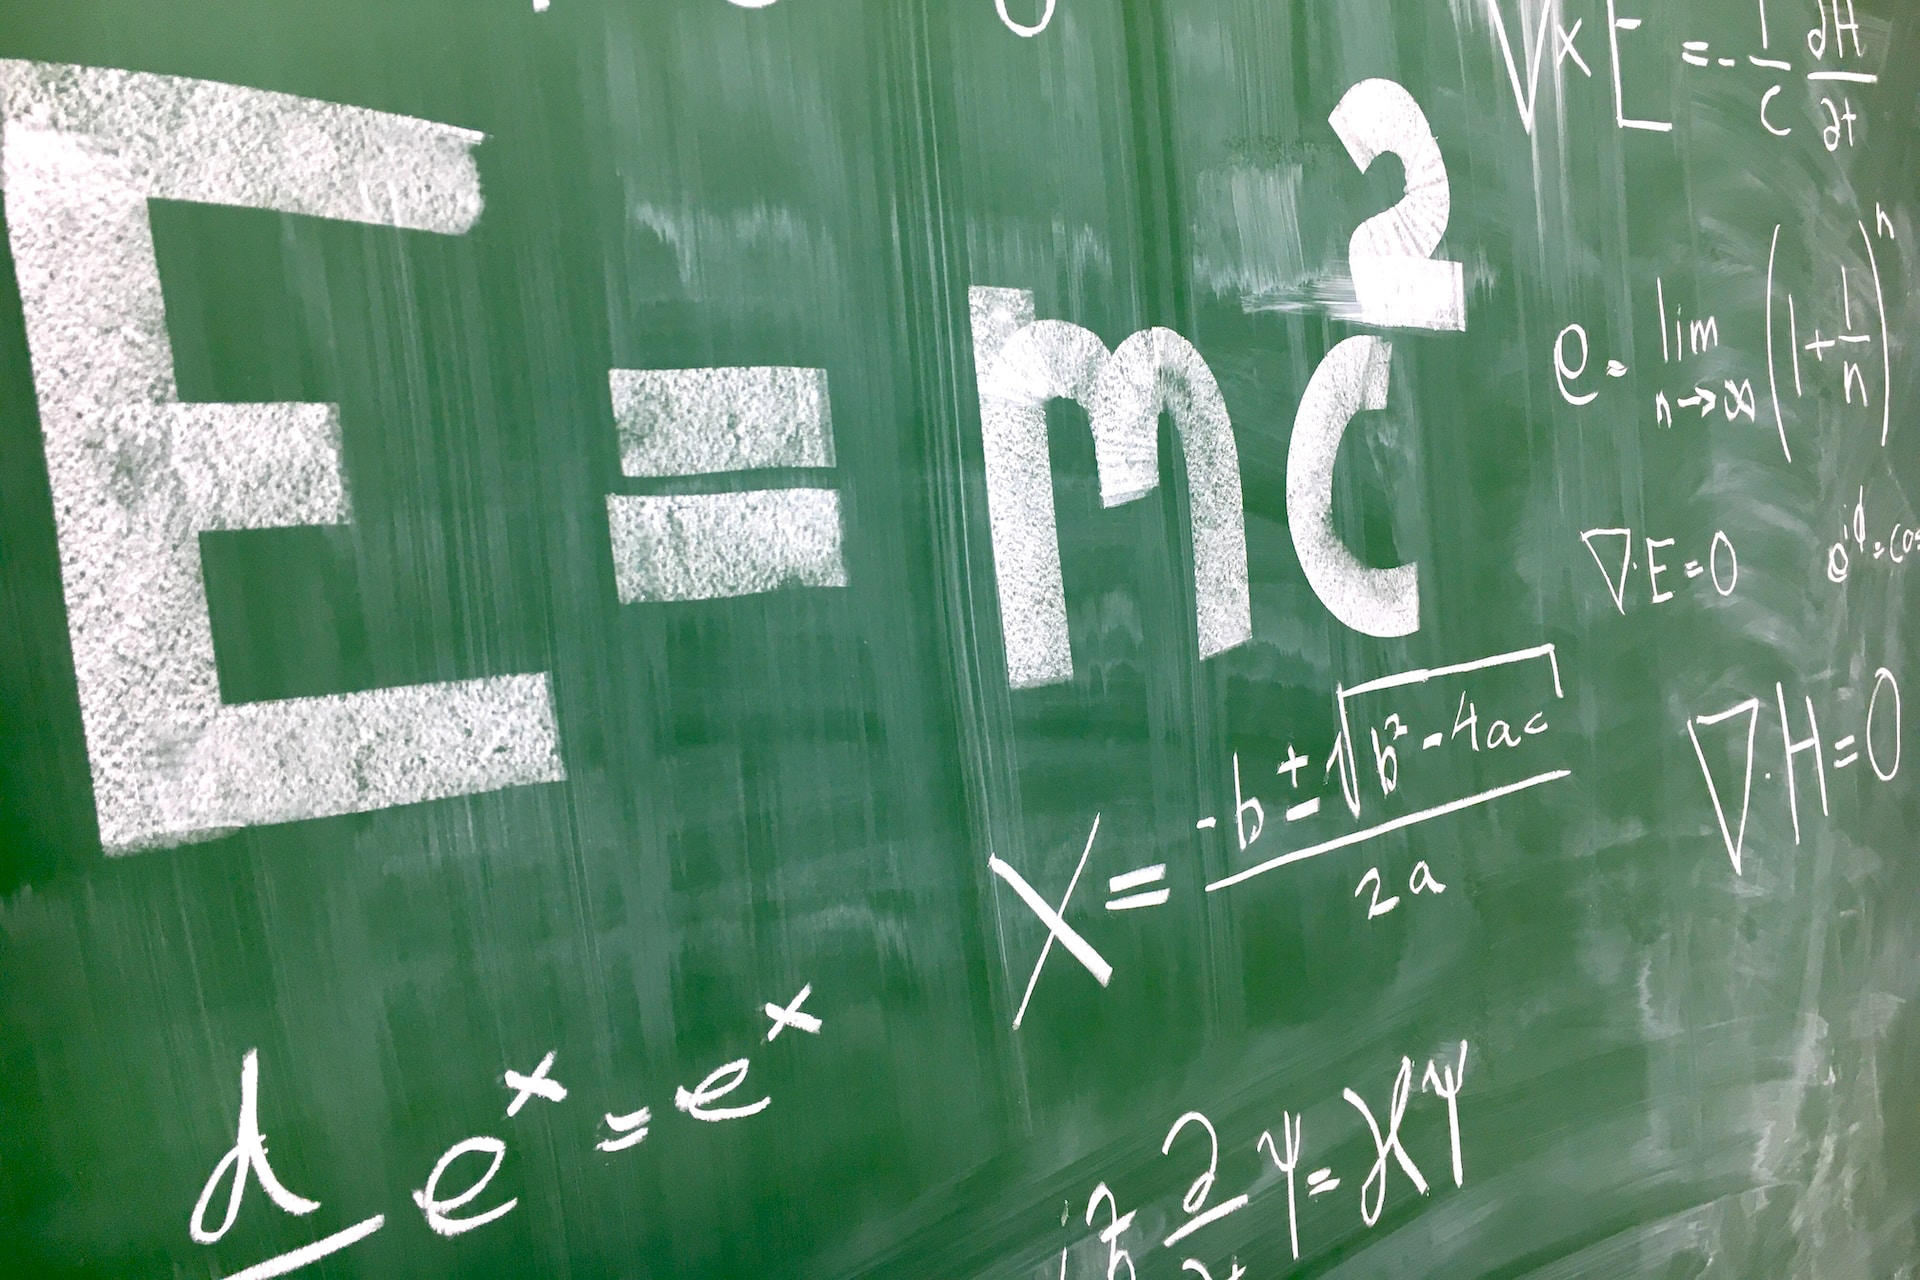 E = mc²
∇×E = - 1/c ∂H/∂t
e = lim n→∞ (1 + 1/n)ⁿ
∇·E = 0
e^iϕ = cos
∇·H = 0
x = -b ± √b² - 4ac / 2a
d eˣ = eˣ
iℏ ∂ ψ = ℋψ